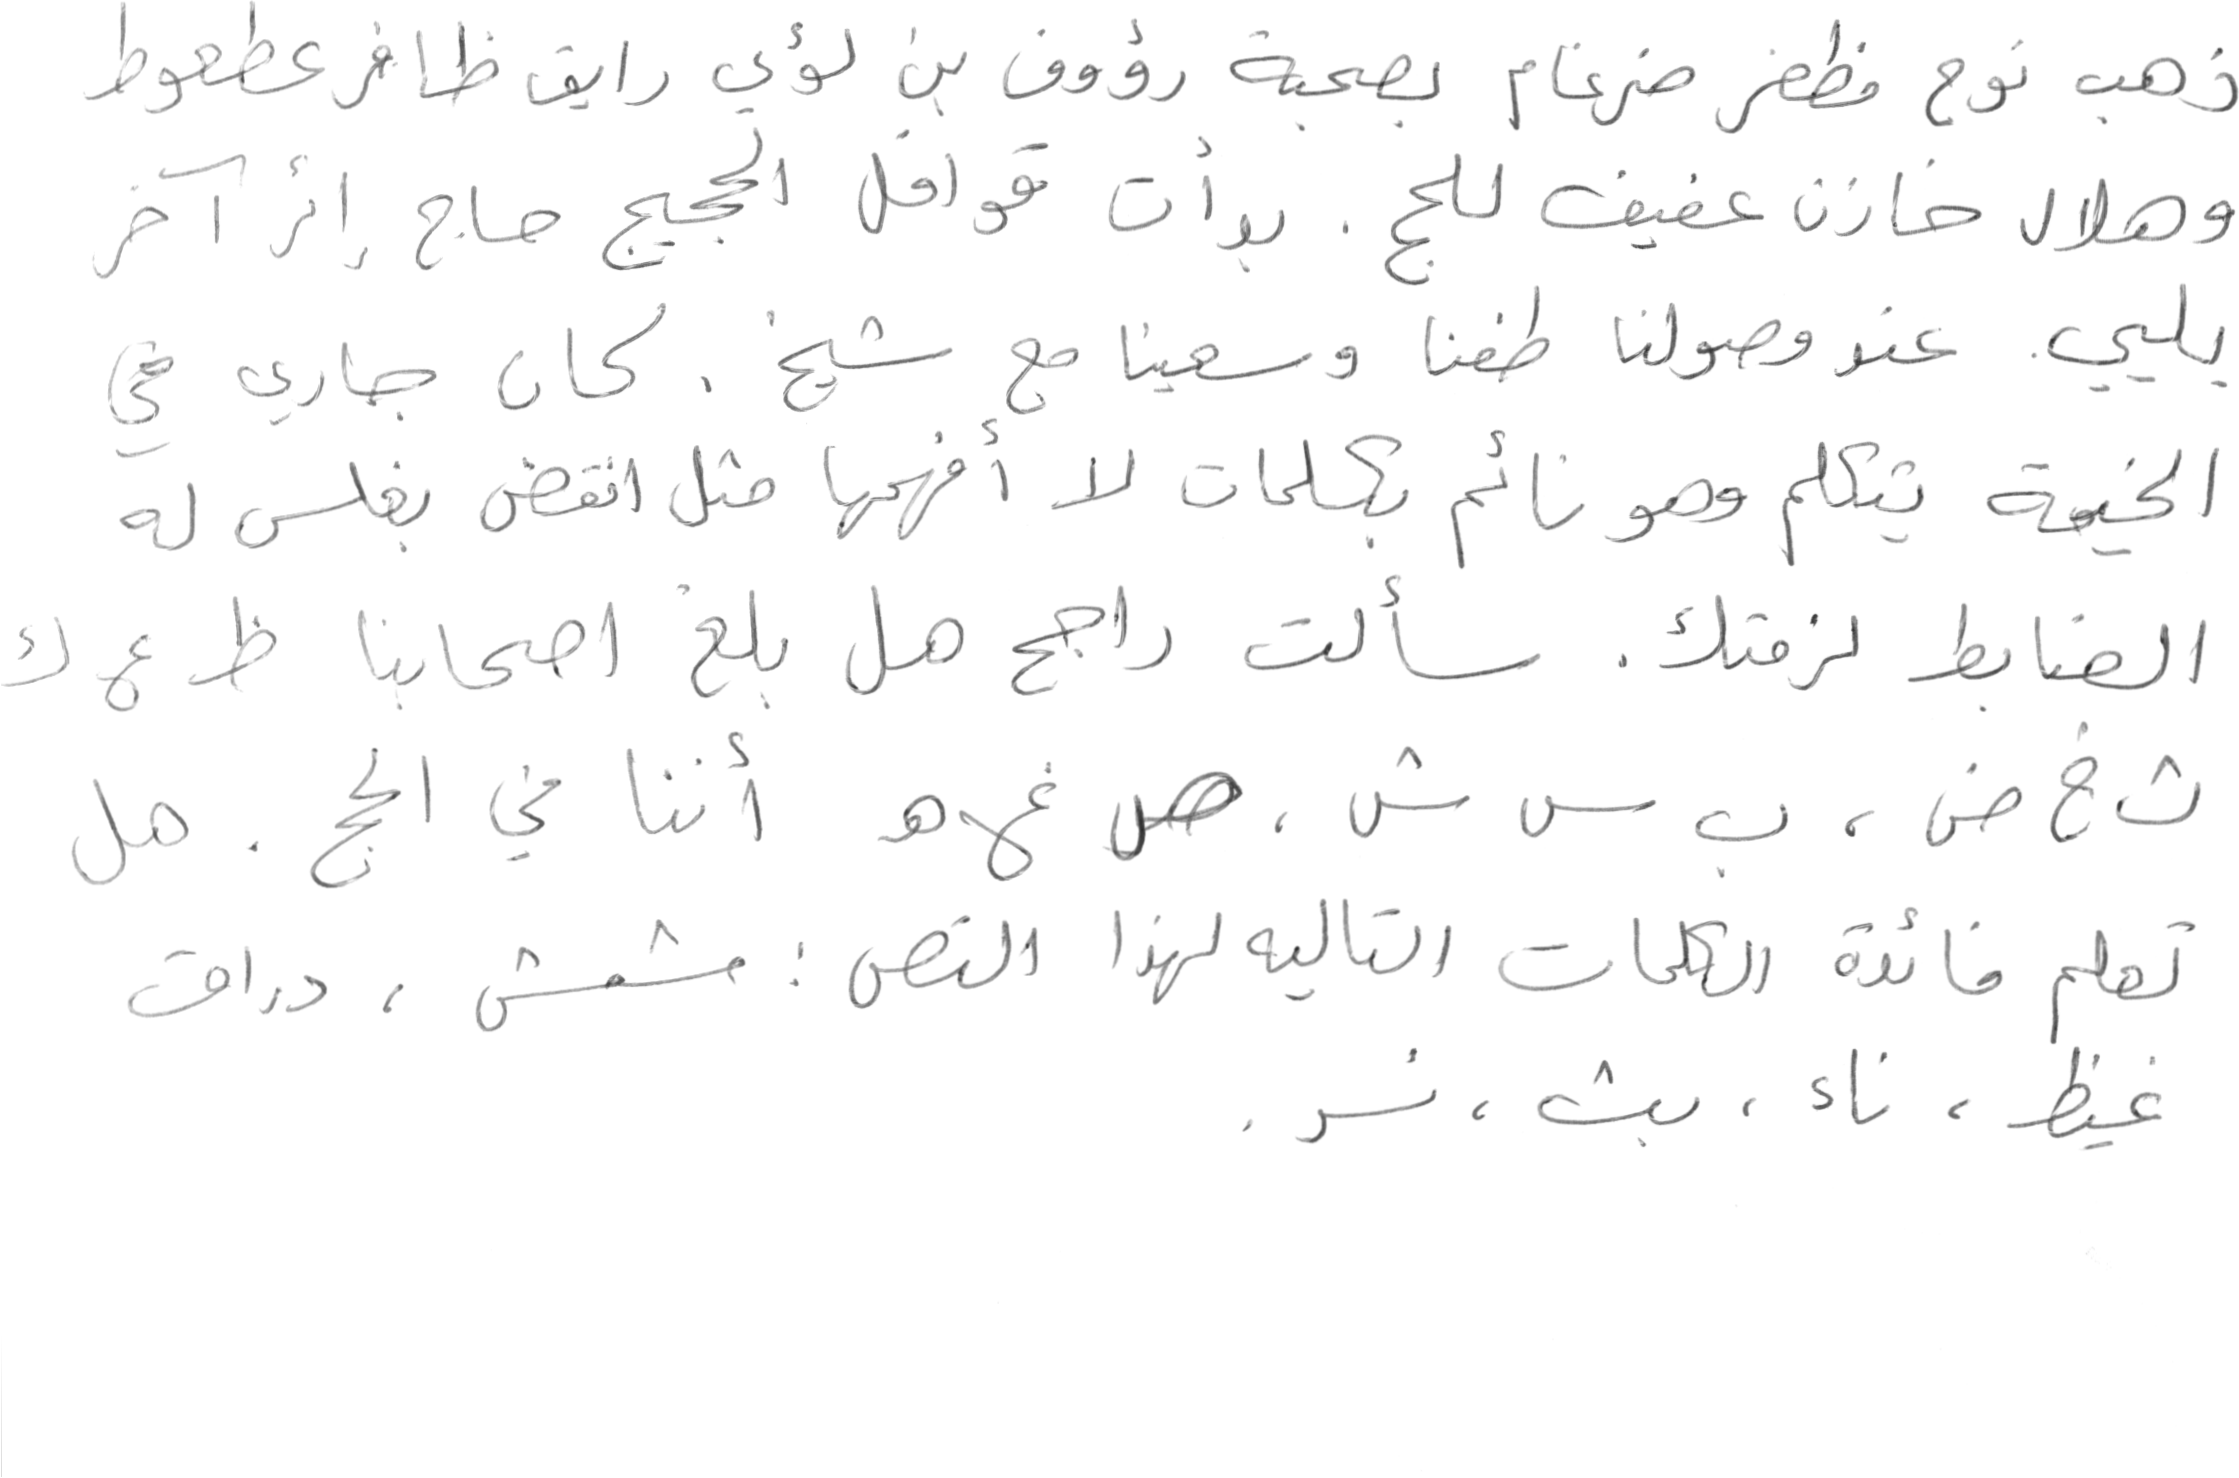 ذهب نوح مظفر ضرغام بصحبة رؤوف بن لؤي رايق ظافر عطعوط
وهلال خازن عفيف للحج . بدأت قوافل الحجيج حاج إثر آخر
يلبي . عند وصولنا طفنا وسعينا مع شيخ . كان جاري في
الخيمة يتكلم وهو نائم بكلمات لا أفهمها مثل انقض بغلس له
الضابط لزمتك . سألت راجح هل بلغ اصحابنا ظ ع ك
ث غ ض ، ب س ش ، ص غ ه أننا في الحج . هل
تعلم فائدة الكلمات التاليه لهذا النص : مشمش ، دراق
غيظ ، ناء ، بث ، نسر .